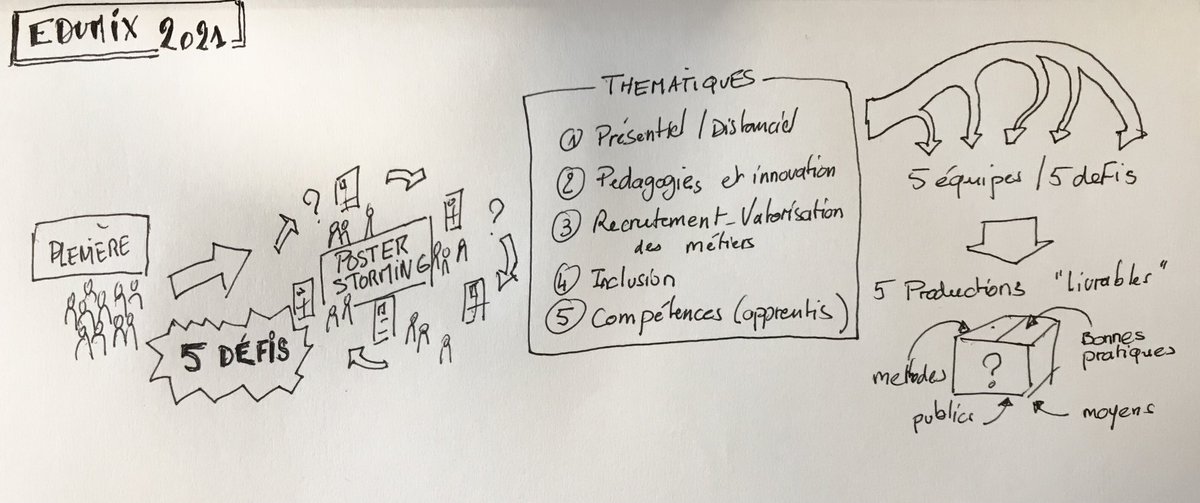 EDUMIX 2021
PLENIÈRE
5 DÉFIS
?
?
POSTER
STORMING
THEMATIQUES
① Présentiel / Distanciel
② Pedagogies et innovation
③ Recrutement_Valorisation
des métiers
④ Inclusion
⑤ Compétences (apprentis)
5 équipes / 5 défis
5 Productions "Livrables"
?
méthodes
Bonnes
pratiques
publics
moyens